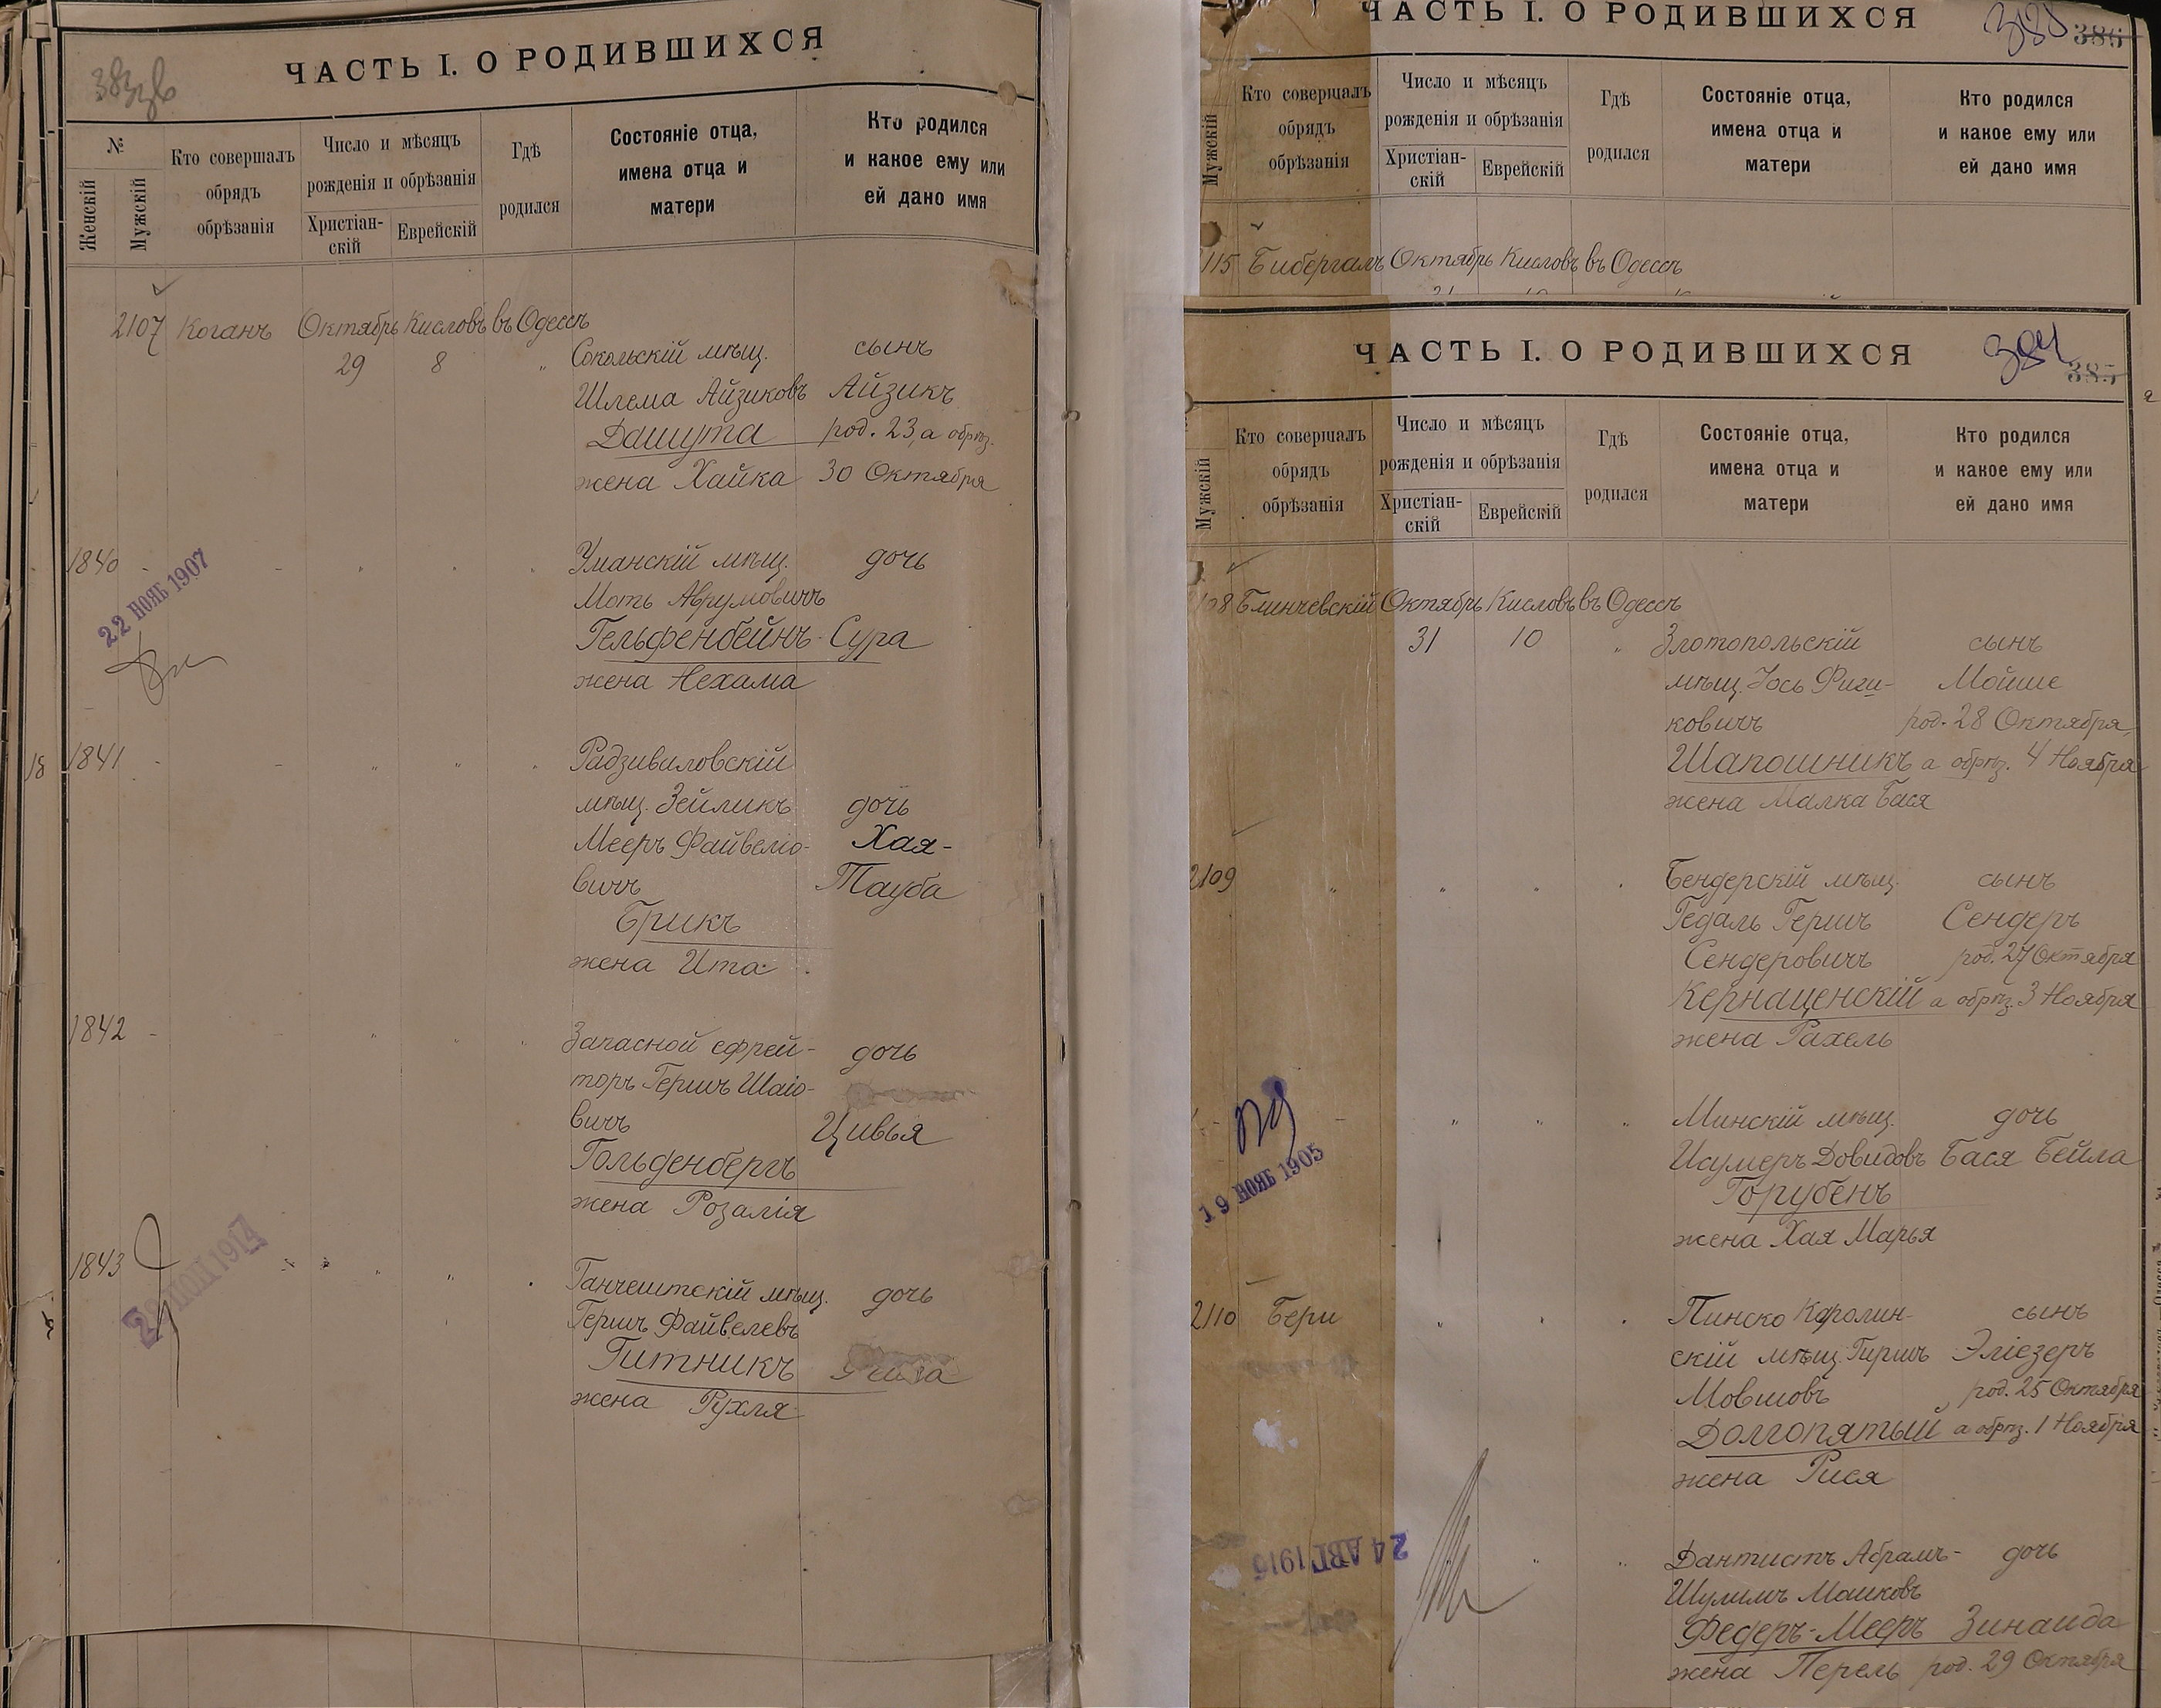 ЧАСТЬ I. О РОДИВШИХСЯ
№
Женскій
Мужскій
Кто совершалъ
обрядъ
обрѣзанія
Число и мѣсяцъ
рожденія и обрѣзанія
Христіан-
скій
Еврейскій
Гдѣ
родился
Состояніе отца,
имена отца и
матери
Кто родился
и какое ему или
ей дано имя
2107 Коганъ Октябрь Кисловъ въ Одессѣ
29 8 " Сокольскій мѣщ. сынъ
Шлема Айзиковъ Айзикъ
Дашута род. 23, а обрѣз.
жена Хайка 30 Октября
1840 Уманскій мѣщ. дочь
22 НОЯБ 1907
Моть Аврумовичъ
Гельфенбейнъ Сура
жена Нехама
1841 Радзивиловскій
мѣщ. Зейликъ дочь
Мееръ Файвеліо- Хая-
вичъ Тауба
Брикъ
жена Ита
1842 Запасной ефрей- дочь
торъ Гершъ Шаіо-
вичъ Цивья
Гольденбергъ
жена Розалія
1843 Ганчештскій мѣщ. дочь
Гершъ Файвелевъ
Гитникъ
жена Рухля
ЧАСТЬ I. О РОДИВШИХСЯ
386
Мужскій
Кто совершалъ
обрядъ
обрѣзанія
Число и мѣсяцъ
рожденія и обрѣзанія
Христіан-
скій
Еврейскій
Гдѣ
родился
Состояніе отца,
имена отца и
матери
Кто родился
и какое ему или
ей дано имя
115 Бибергалъ Октябрь Кисловъ въ Одессѣ
ЧАСТЬ I. О РОДИВШИХСЯ
384
385
Мужскій
Кто совершалъ
обрядъ
обрѣзанія
Число и мѣсяцъ
рожденія и обрѣзанія
Христіан-
скій
Еврейскій
Гдѣ
родился
Состояніе отца,
имена отца и
матери
Кто родился
и какое ему или
ей дано имя
108 Блинчевскій Октябрь Кисловъ въ Одессѣ
31 10 " Злотопольскій сынъ
мѣщ. Іось Фиги- Мойше
ковичъ род. 28 Октября,
Шапошникъ а обрѣз. 4 Ноября
жена Малка Бася
2109 Бендерскій мѣщ. сынъ
Гедаль Гершъ Сендеръ
Сендеровичъ род. 27 Октября
Кернаценскій а обрѣз. 3 Ноября
жена Рахель
Минскій мѣщ. дочь
19 НОЯБ 1905
Исумеръ Довидовъ Бася Бейла
Горубенъ
жена Хая Марья
2110 Бери Пинско Каролин- сынъ
скій мѣщ. Гиршъ Эліезеръ
Мовшовъ род. 25 Октября
Долгопятый а обрѣз. 1 Ноября
жена Рися
24 АВГ 1915
Дантистъ Абрамъ- дочь
Шулимъ Маиковъ
Федеръ-Мееръ Зинаида
жена Перель род. 29 Октября